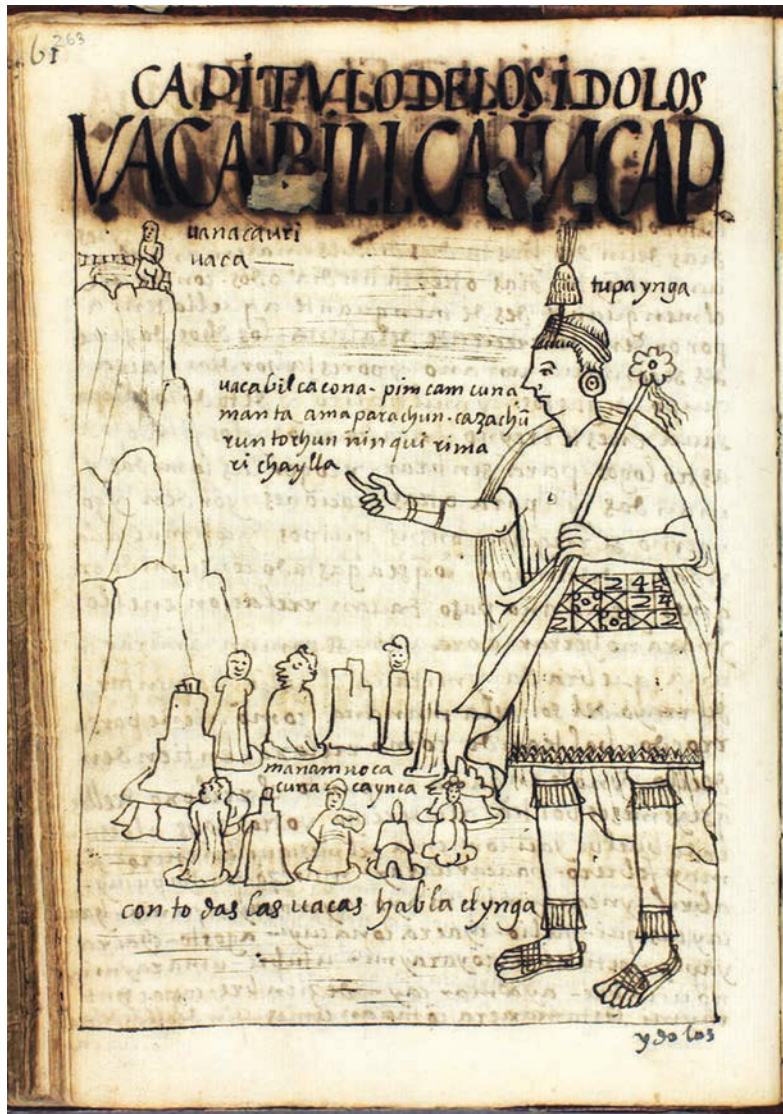 263
61
CAPITVLO DE LOS IDOLOS
VACA BILLCA INCAP
uanacauri
uaca
tupa ynga
uacabilcacona - pim cam cuna
manta ama parachun - cazachū
runtochun ninqui rima
ri chaylla
manam noca
cuna ca ynca
con todas las uacas habla el ynga
ydolos